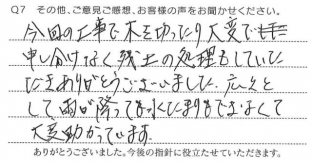 Q7 その他、ご意見ご感想、お客様の声をお聞かせください。
今回の工事で木を切ったり大変で
申し分けなく残土の処理もしていた
だきありがとうございました。広々と
して雨が降っても水たまりもできなくて
大変助かっています。
ありがとうございました。今後の指針に役立たせていただきます。